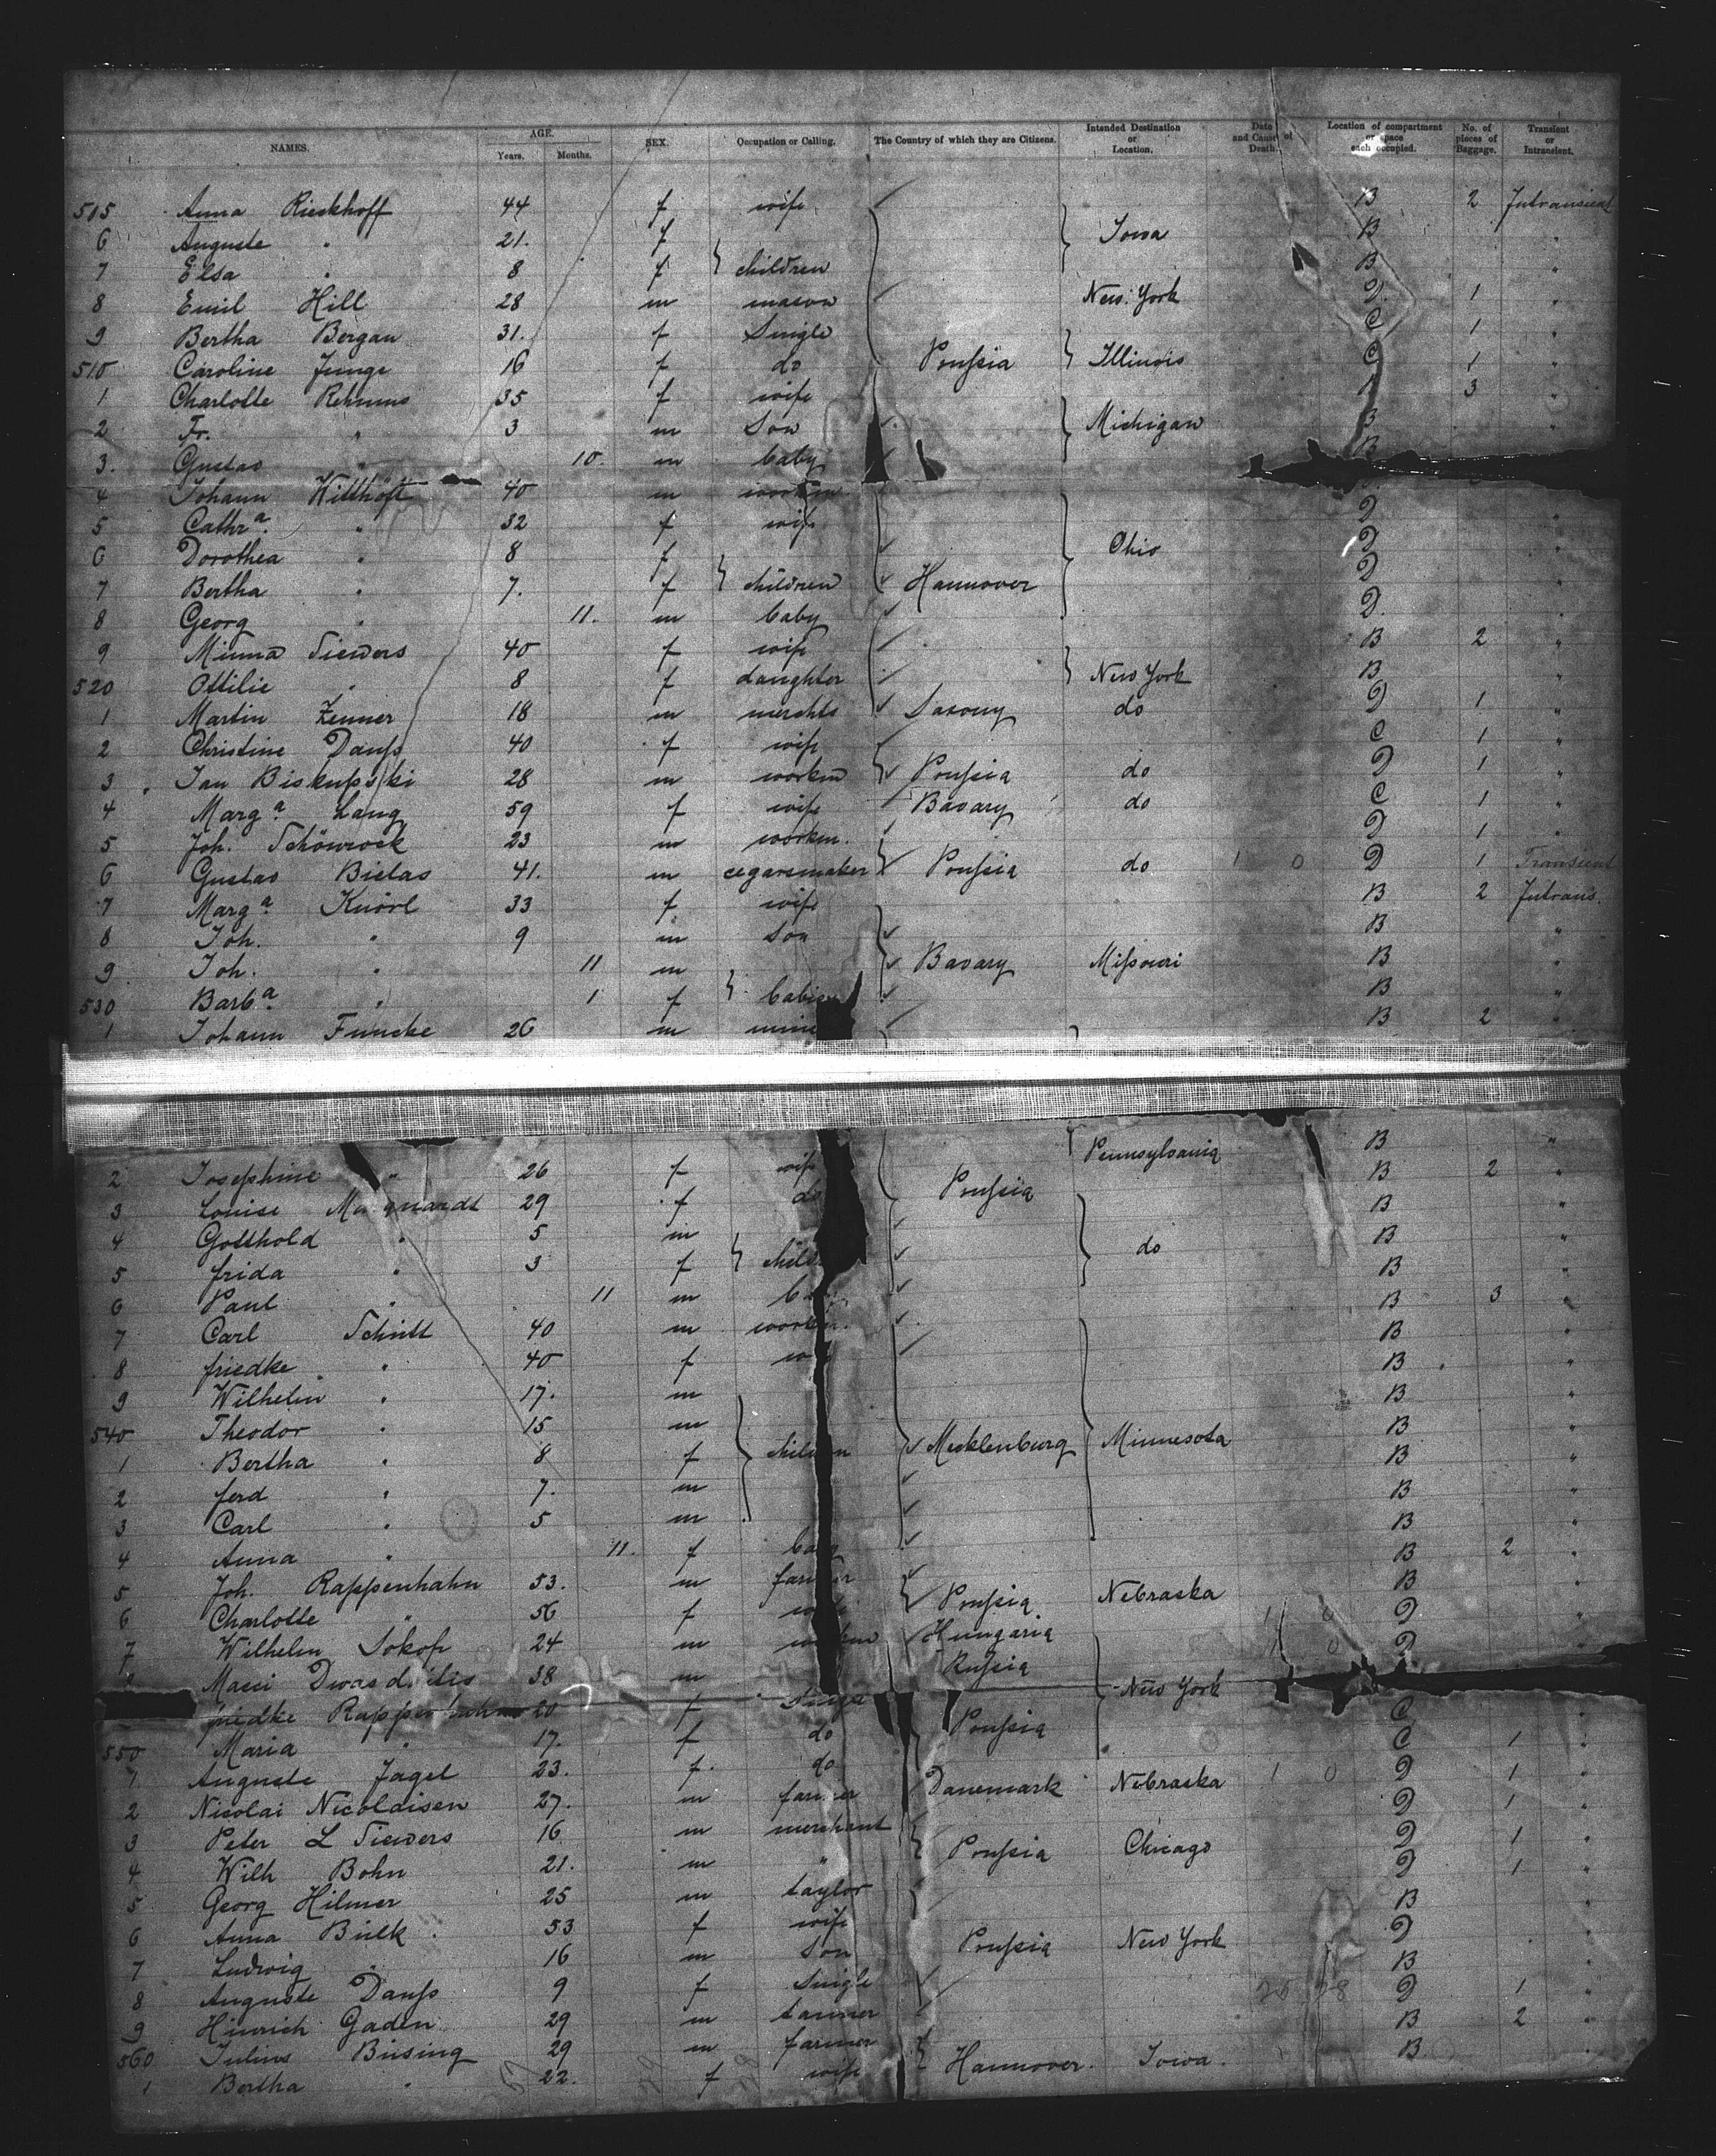 NAMES. AGE. Years. Months. SEX. Occupation or Calling. The Country of which they are Citizens. Intended Destination or Location. Date and Cause of Death. Location of compartment or space each occupied. No. of pieces of Baggage. Transient or Intransient.
505 Anna Rieckhoff 44 f wife B 2 Intransient
6 Auguste " 21. f Iowa B "
7 Elsa " 8 f children B "
8 Emil Hill 28 m mason New York D. 1 "
9 Bertha Bergau 31. f Single C 1 "
510 Caroline Junge 16 f do Prußia Illinois C 1 "
1 Charlotte Rehmus 35 f wife 3 "
2 Fr. " 3 m Son Michigan B "
3. Gustav " 10. m baby B
4 Johann Witthöft 40 m workm
5 Cathr.a " 32 f wife D "
6 Dorothea " 8 f Ohio D "
7 Bertha " 7. f children Hannover D "
8 Georg " 11. m baby D. "
9 Minna Siewers 40 f wife B 2 "
520 Ottilie " 8 f daughter New York B "
1 Martin Zenner 18 m merchts Saxony do D 1 "
2 Christine Dauß 40 f wife C 1 "
3 Jan Biskupski 28 m workm Prußia do D 1 "
4 Marg.a Lang 59 f wife Bavary do C 1 "
5 Joh. Schönrock 23 m workm. D 1 "
6 Gustav Bielas 41. m cegarsmaker Prußia do 1 0 D 1 Transient
7 Marg.a Knörl 33 f wife B 2 Intrans.
8 Joh. " 9 m Son B "
9 Joh. " 11 m Bavary Mißouri B "
530 Barb.a " 1 f babies B "
1 Johann Funcke 26 m mine B 2 "
Pennsylvania B "
2 Josephine " 26 f wife Prußia B 2 "
3 Louise Marquardt 29 f do B "
4 Gotthold " 5 m do B "
5 frida " 3 f child B "
6 Paul " 11 m B 3 "
7 Carl Schütt 40 m workm. B "
8 friedke " 40 f B "
9 Wilhelm " 17. m B "
540 Theodor " 15 m Mecklenburg Minnesota B "
1 Bertha " 8 f children B "
2 ferd " 7. m B "
3 Carl " 5 m B "
4 Anna " 11. f baby B 2 "
5 Joh. Rappenhahn 53. m farmer Prußia Nebraska B "
6 Charlotte " 56 f 1 0 D "
7 Wilhelm Sokop 24 m workm Hungaria 1 0 D "
38 m Rußia New York
friedke Rappenhahn 20 f Single Prußia C "
550 Maria " 17. f do C 1 "
1 Auguste Jagel 23. f. do D 1 "
2 Nicolai Nicolaisen 27. m farmer Danemark Nebraska 1 0 D 1 "
3 Peter L Siewers 16 m merchant D 1 "
4 Wilh Bohn 21. m " Prußia Chicago D 1 "
5 Georg Hilmer 25 m taylor B
6 Anna Bülk 53 f wife D "
7 Ludwig " 16 m Son Prußia New York B "
8 Auguste Dauß 9 f Single D 1 "
9 Hinrich Gaden 29 m tanner B 2 "
560 Julius Büsing 29 m farmer Hannover. Iowa. B "
1 Bertha " 22. f wife